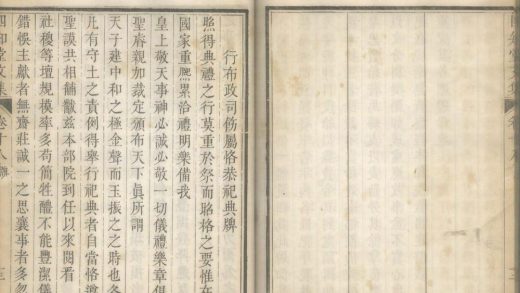 行布政司飭屬恪恭祀典牌
照得典禮之行莫重於祭而昭格之要惟在
國家重熙累洽禮明樂備我
皇上敬天事神必誠必敬一切儀禮樂章俱
聖睿親加裁定頒布天下眞所謂
天子建中和之極金聲而玉振之之時也
凡有守土之責例得舉行祀典者自當恪遵
聖謨共相黼黻茲本部院到任以來閱看
社稷等壇規模率多苟簡牲醴不能豐潔儀
錯悞主獻者無齋莊誠一之思襄事者多忽
四知堂文集 卷十八